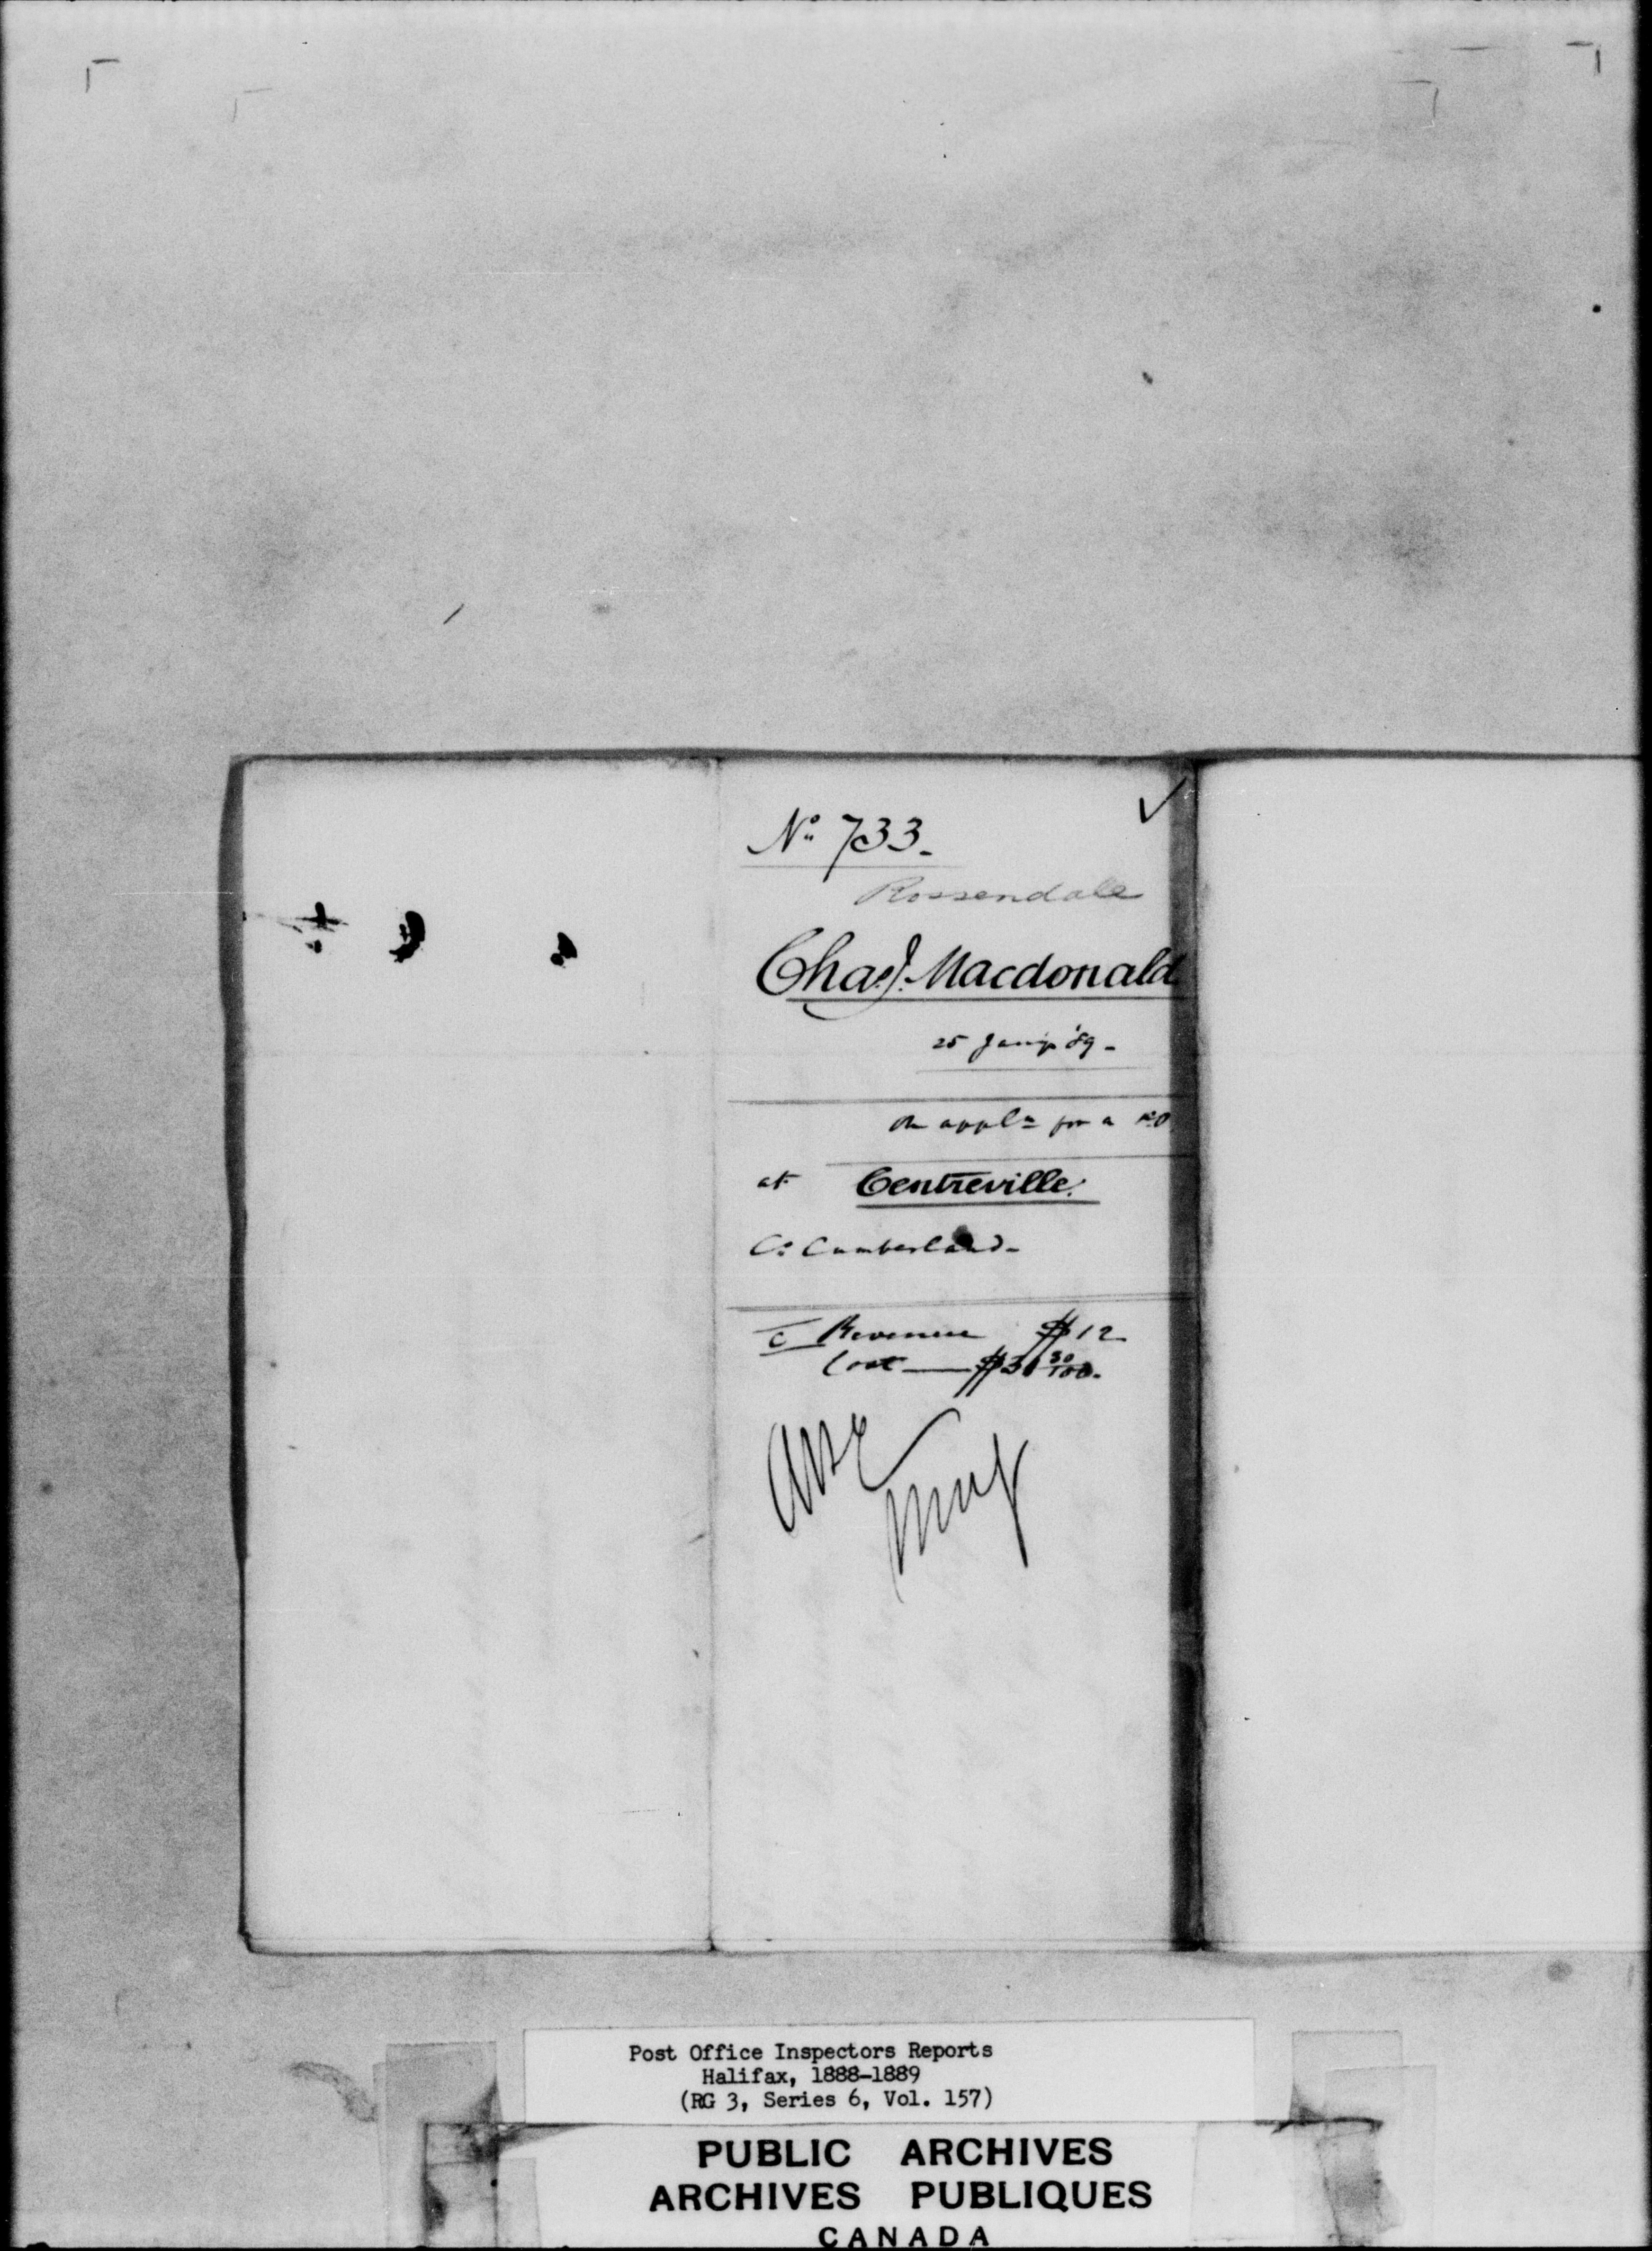 No 733.
Rossendale
Chas. J. Macdonald
25 Jany '89.
On appln for a P.O.
at Centreville.
Co Cumberland.
Revenue $12
Cost — $30 50/100.
Post Office Inspectors Reports
Halifax, 1888-1889
(RG 3, Series 6, Vol. 157)
PUBLIC ARCHIVES
ARCHIVES PUBLIQUES
CANADA